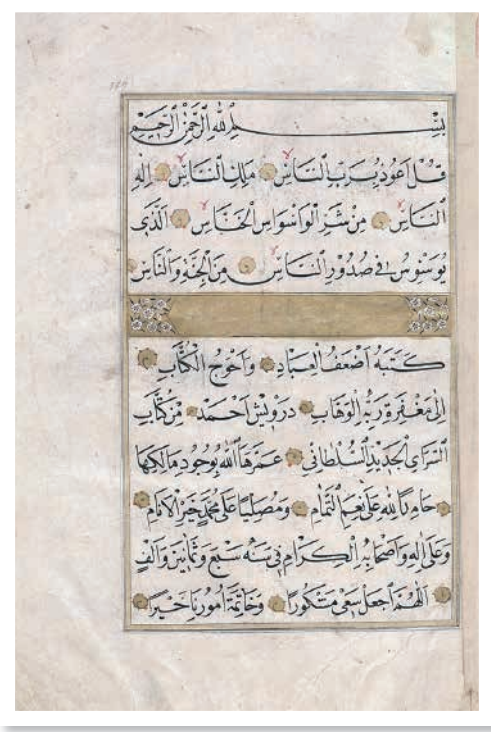 بِسْمِ اللهِ الرَّحْمٰنِ الرَّحِيمِ
قُلْ اَعُوذُ بِرَبِّ النَّاسِ مَلِكِ النَّاسِ اِلٰهِ
النَّاسِ مِنْ شَرِّ الْوَسْوَاسِ الْخَنَّاسِ اَلَّذِى
يُوَسْوِسُ فِى صُدُورِ النَّاسِ مِنَ الْجِنَّةِ وَالنَّاسِ
كَتَبَهُ اَضْعَفُ الْعِبَادِ وَاَحْوَجُ الْكُتَّابِ
اِلٰى مَغْفِرَةِ رَبِّهِ الْوَهَّابِ دَرْوِيشْ اَحْمَدْ مِنْ كُتَّابِ
السَّرَاىِ الْجَدِيدِ السُّلْطَانِى عَمَّرَهَا اللهُ بِوُجُودِ مَالِكِهَا
حَامِدًا لِلّٰهِ عَلٰى نِعَمِ التَّمَامِ وَمُصَلِّيًا عَلٰى مُحَمَّدٍ خَيْرِ الْاَنَامِ
وَعَلٰى اٰلِهِ وَاَصْحَابِهِ الْكِرَامِ فِى سَنَةِ سَبْعٍ وَثَمَانِينَ وَاَلْفٍ
اَللّٰهُمَّ اجْعَلْ سَعْىِ مَشْكُورًا وَخَاتِمَةَ اُمُورِنَا خَيْرًا